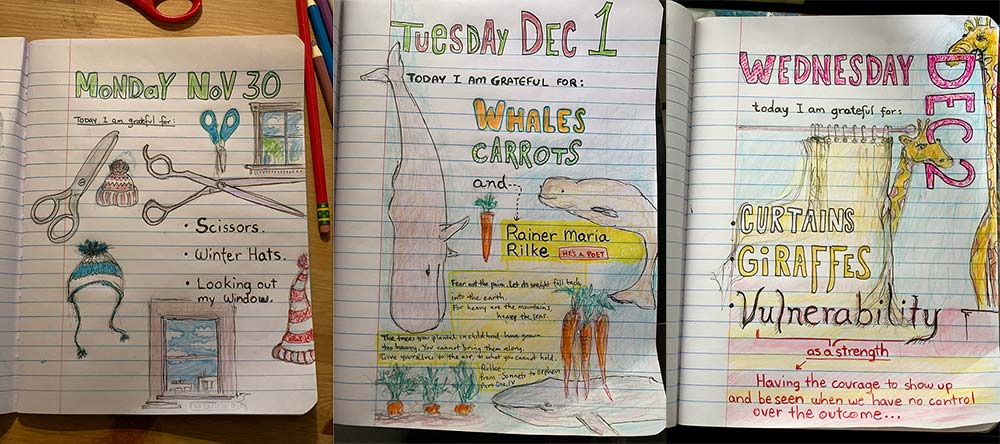 MONDAY NOV 30
Today I am grateful for:
• Scissors.
• Winter Hats.
• Looking out
my window.
TUESDAY DEC 1
TODAY I AM GRATEFUL FOR:
WHALES
CARROTS
and
Rainer Maria
Rilke
HE'S A POET
Fear not the pain. Let its weight fall back
into the earth,
For heavy are the mountains,
heavy the seas.
The trees you planted in childhood have grown
too heavy. You cannot bring them along.
Give yourselves to the air, to what you cannot hold.
Rilke,
from Sonnets to Orpheus
Part One, IV
WEDNESDAY DEC 2
today I am grateful for:
• CURTAINS
GIRAFFES
• Vulnerability
as a strength
Having the courage to show up
and be seen when we have no control
over the outcome...